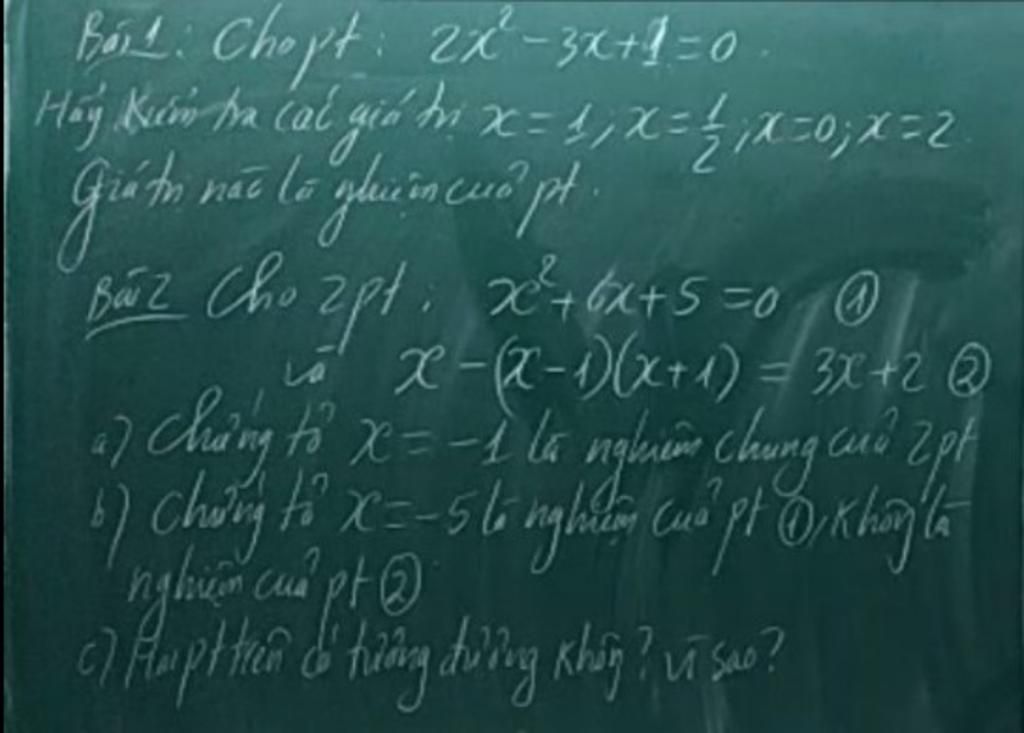 Bài 1: Cho pt: 2x² - 3x + 1 = 0.
Hãy kiểm tra các giá trị x = 1; x = 1/2; x = 0; x = 2.
Giá trị nào là nghiệm của pt.
Bài 2 Cho 2 pt: x² + 6x + 5 = 0 ①
và x - (x - 1)(x + 1) = 3x + 2 ②
a) Chứng tỏ x = -1 là nghiệm chung của 2 pt
b) Chứng tỏ x = -5 là nghiệm của pt ①, không là
nghiệm của pt ②
c) Hai pt trên có tương đương không? vì sao?